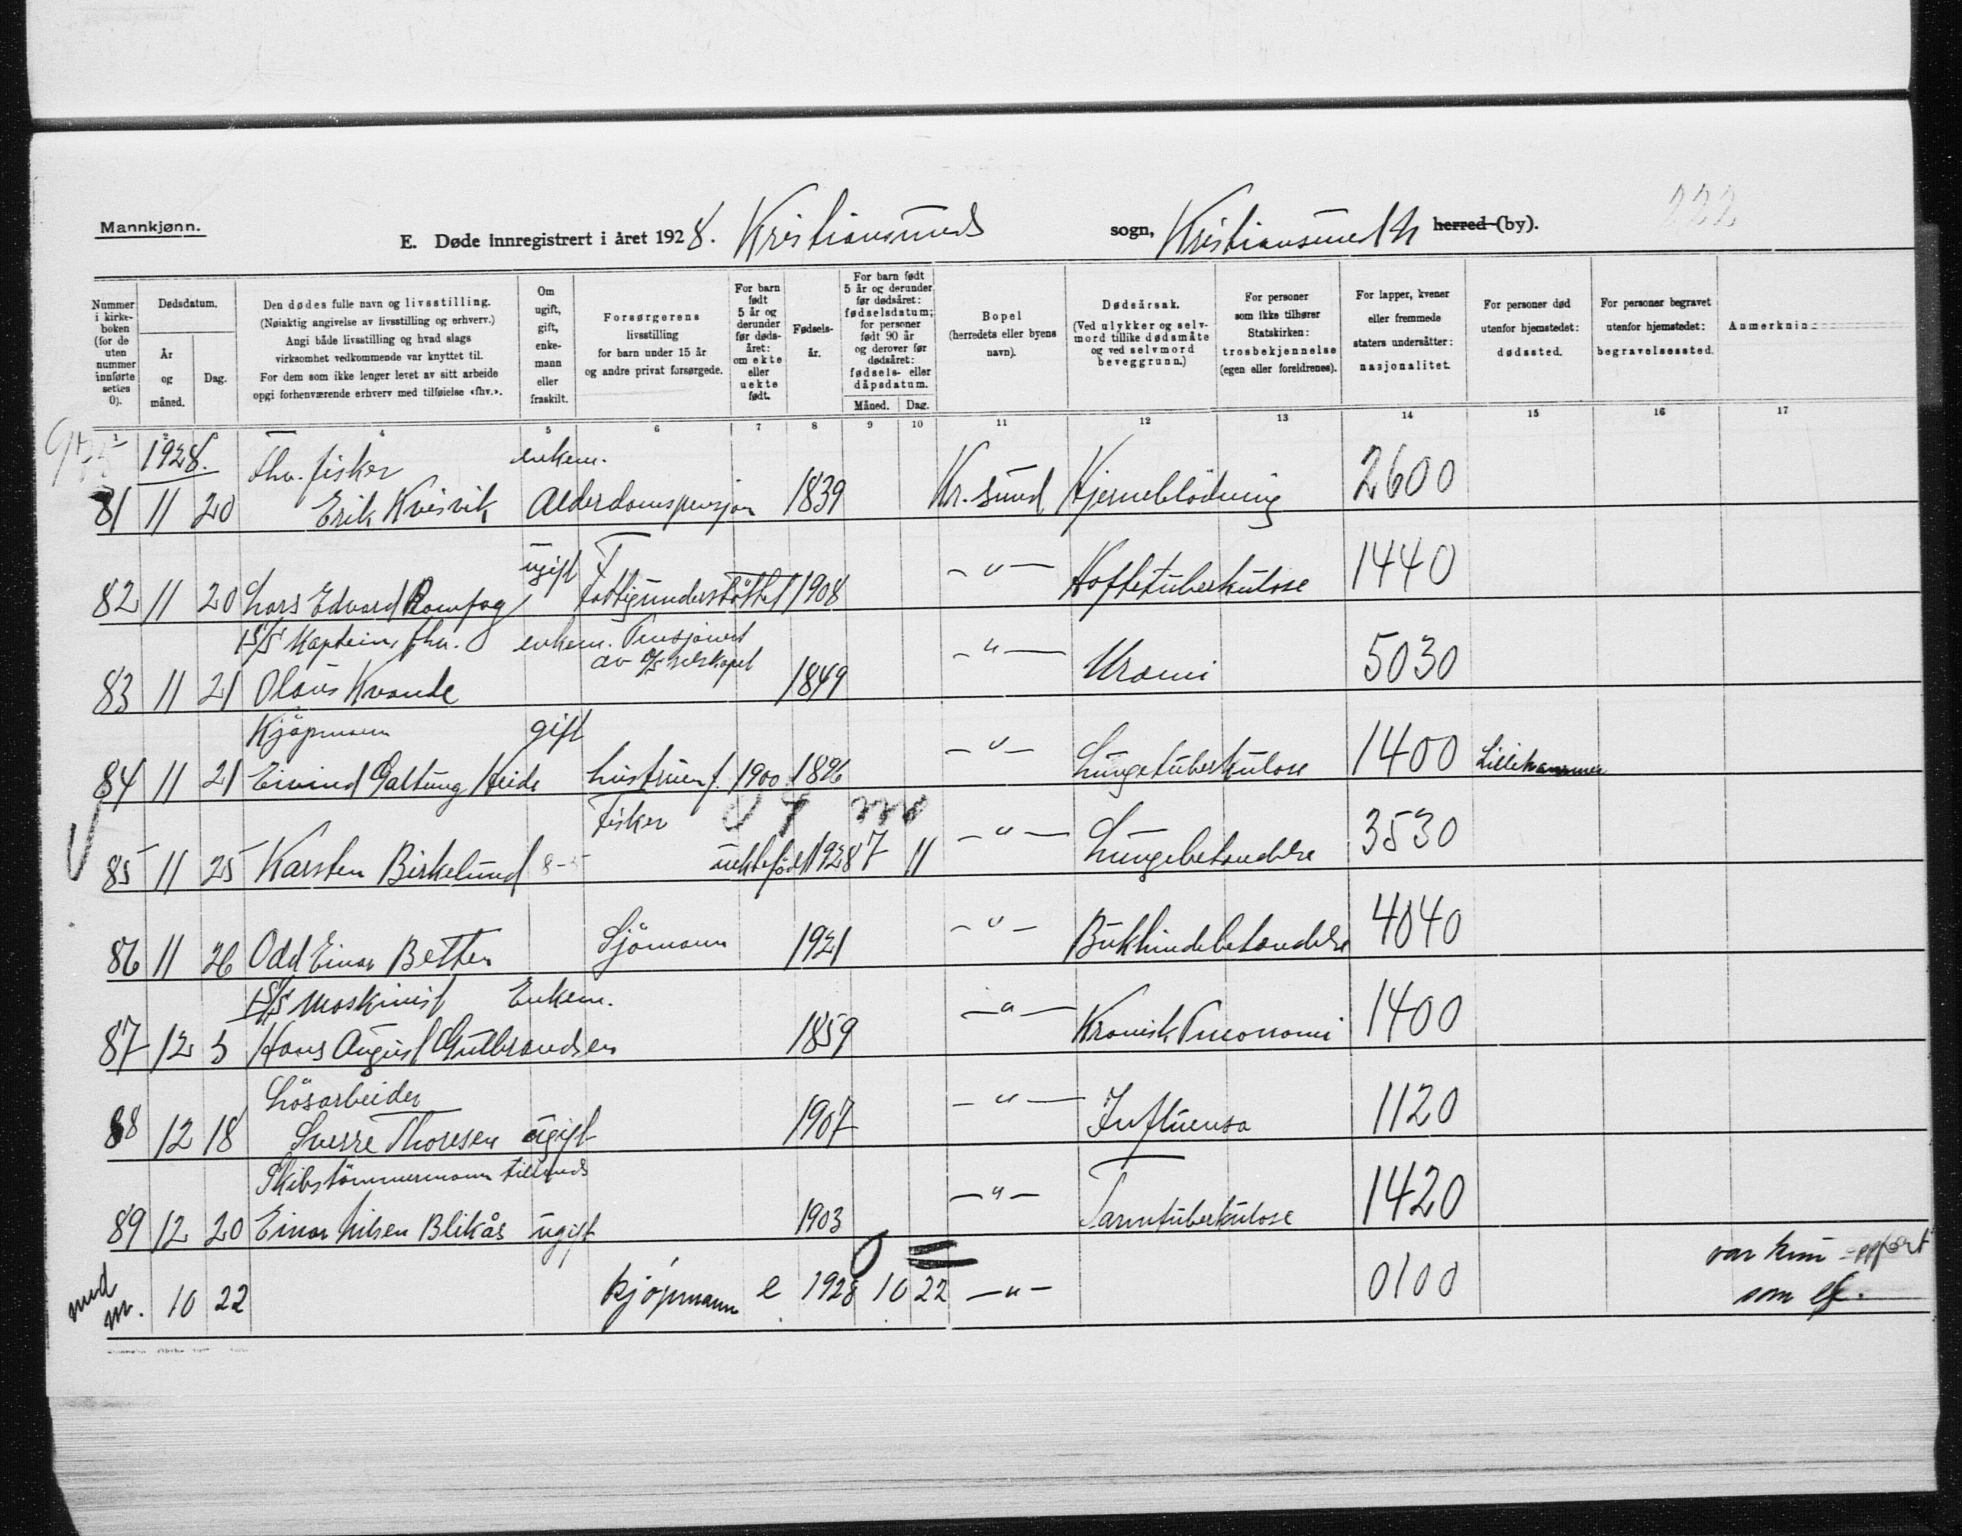 222
Mannkjønn.
E. Døde innregistrert i året 1928. Kristiansunds sogn, Kristiansund N herred (by).
Nummer i kirke-boken (for de uten nummer innførte settes 0).
Dødsdatum.
År og måned.
Dag.
Den dødes fulle navn og livsstilling.
(Nøiaktig angivelse av livsstilling og erhverv.)
Angi både livsstilling og hvad slags
virksomhet vedkommende var knyttet til.
For dem som ikke lenger levet av sitt arbeide
opgi forhenværende erhverv med tilføielse «fhv.».
Om ugift, gift, enke-mann eller fraskilt.
Forsørgerens
livsstilling
for barn under 15 år
og andre privat forsørgede.
For barn født 5 år og derunder før døds-året: om ekte eller uekte født.
Fødsels-år.
For barn født 5 år og derunder før dødsåret: fødselsdatum; for personer født 90 år og derover før dødsåret: fødsels- eller dåpsdatum.
Måned. Dag.
Bopel
(herredets eller byens navn).
Dødsårsak.
(Ved ulykker og selv-mord tillike dødsmåte og ved selvmord beveggrunn.)
For personer som ikke tilhører Statskirken: trosbekjennelse (egen eller foreldrenes).
For lapper, kvener eller fremmede staters undersåtter: nasjonalitet.
For personer død utenfor hjemstedet: dødssted.
For personer begravet utenfor hjemstedet: begravelsessted.
Anmerknin
1 2 3 4 5 6 7 8 9 10 11 12 13 14 15 16 17
1928. Fhv. fisker enkem.
81 11 20 Erik Kvisvik Alderdomspensjon 1839 Kr.sund Hjerneblödning 2600
ugift
82 11 20 Lars Edvard Romfog Fattigunderstöttet 1908 -"- Hoftetuberkulose 1440
D/S Kaptein, fhv. enkem. Pensjonert
av D/S selskapet
83 11 21 Olaus Kvande 1849 -"- Uræmi 5030
Kjöpmann gift
84 11 21 Eivind Galtung Heide hustruen f. 1900 1896 -"- Lungetuberkulose 1400 Lillehammer
Fisker
85 11 25 Karsten Birkelund 8-5 uektefödt 1928 7 11 -"- Lungebetændelse 3530
86 11 26 Odd Einar Betten Sjömann 1921 -"- Bukhindebetændelse 4040
D/S Maskinist Enkem.
87 12 5 Hans August Gulbrandsen 1859 -"- Kronisk Pneonomi 1400
Lösarbeider
88 12 18 Sverre Thoresen ugift 1907 -"- Influensa 1120
Skibstömmermann tillands
89 12 20 Einar Nilsen Blikås ugift 1903 -"- Tarmtuberkulose 1420
med nr. 10 22 kjøpmann e 1928 10 22 -"- 0100 var kun oppført
som df.